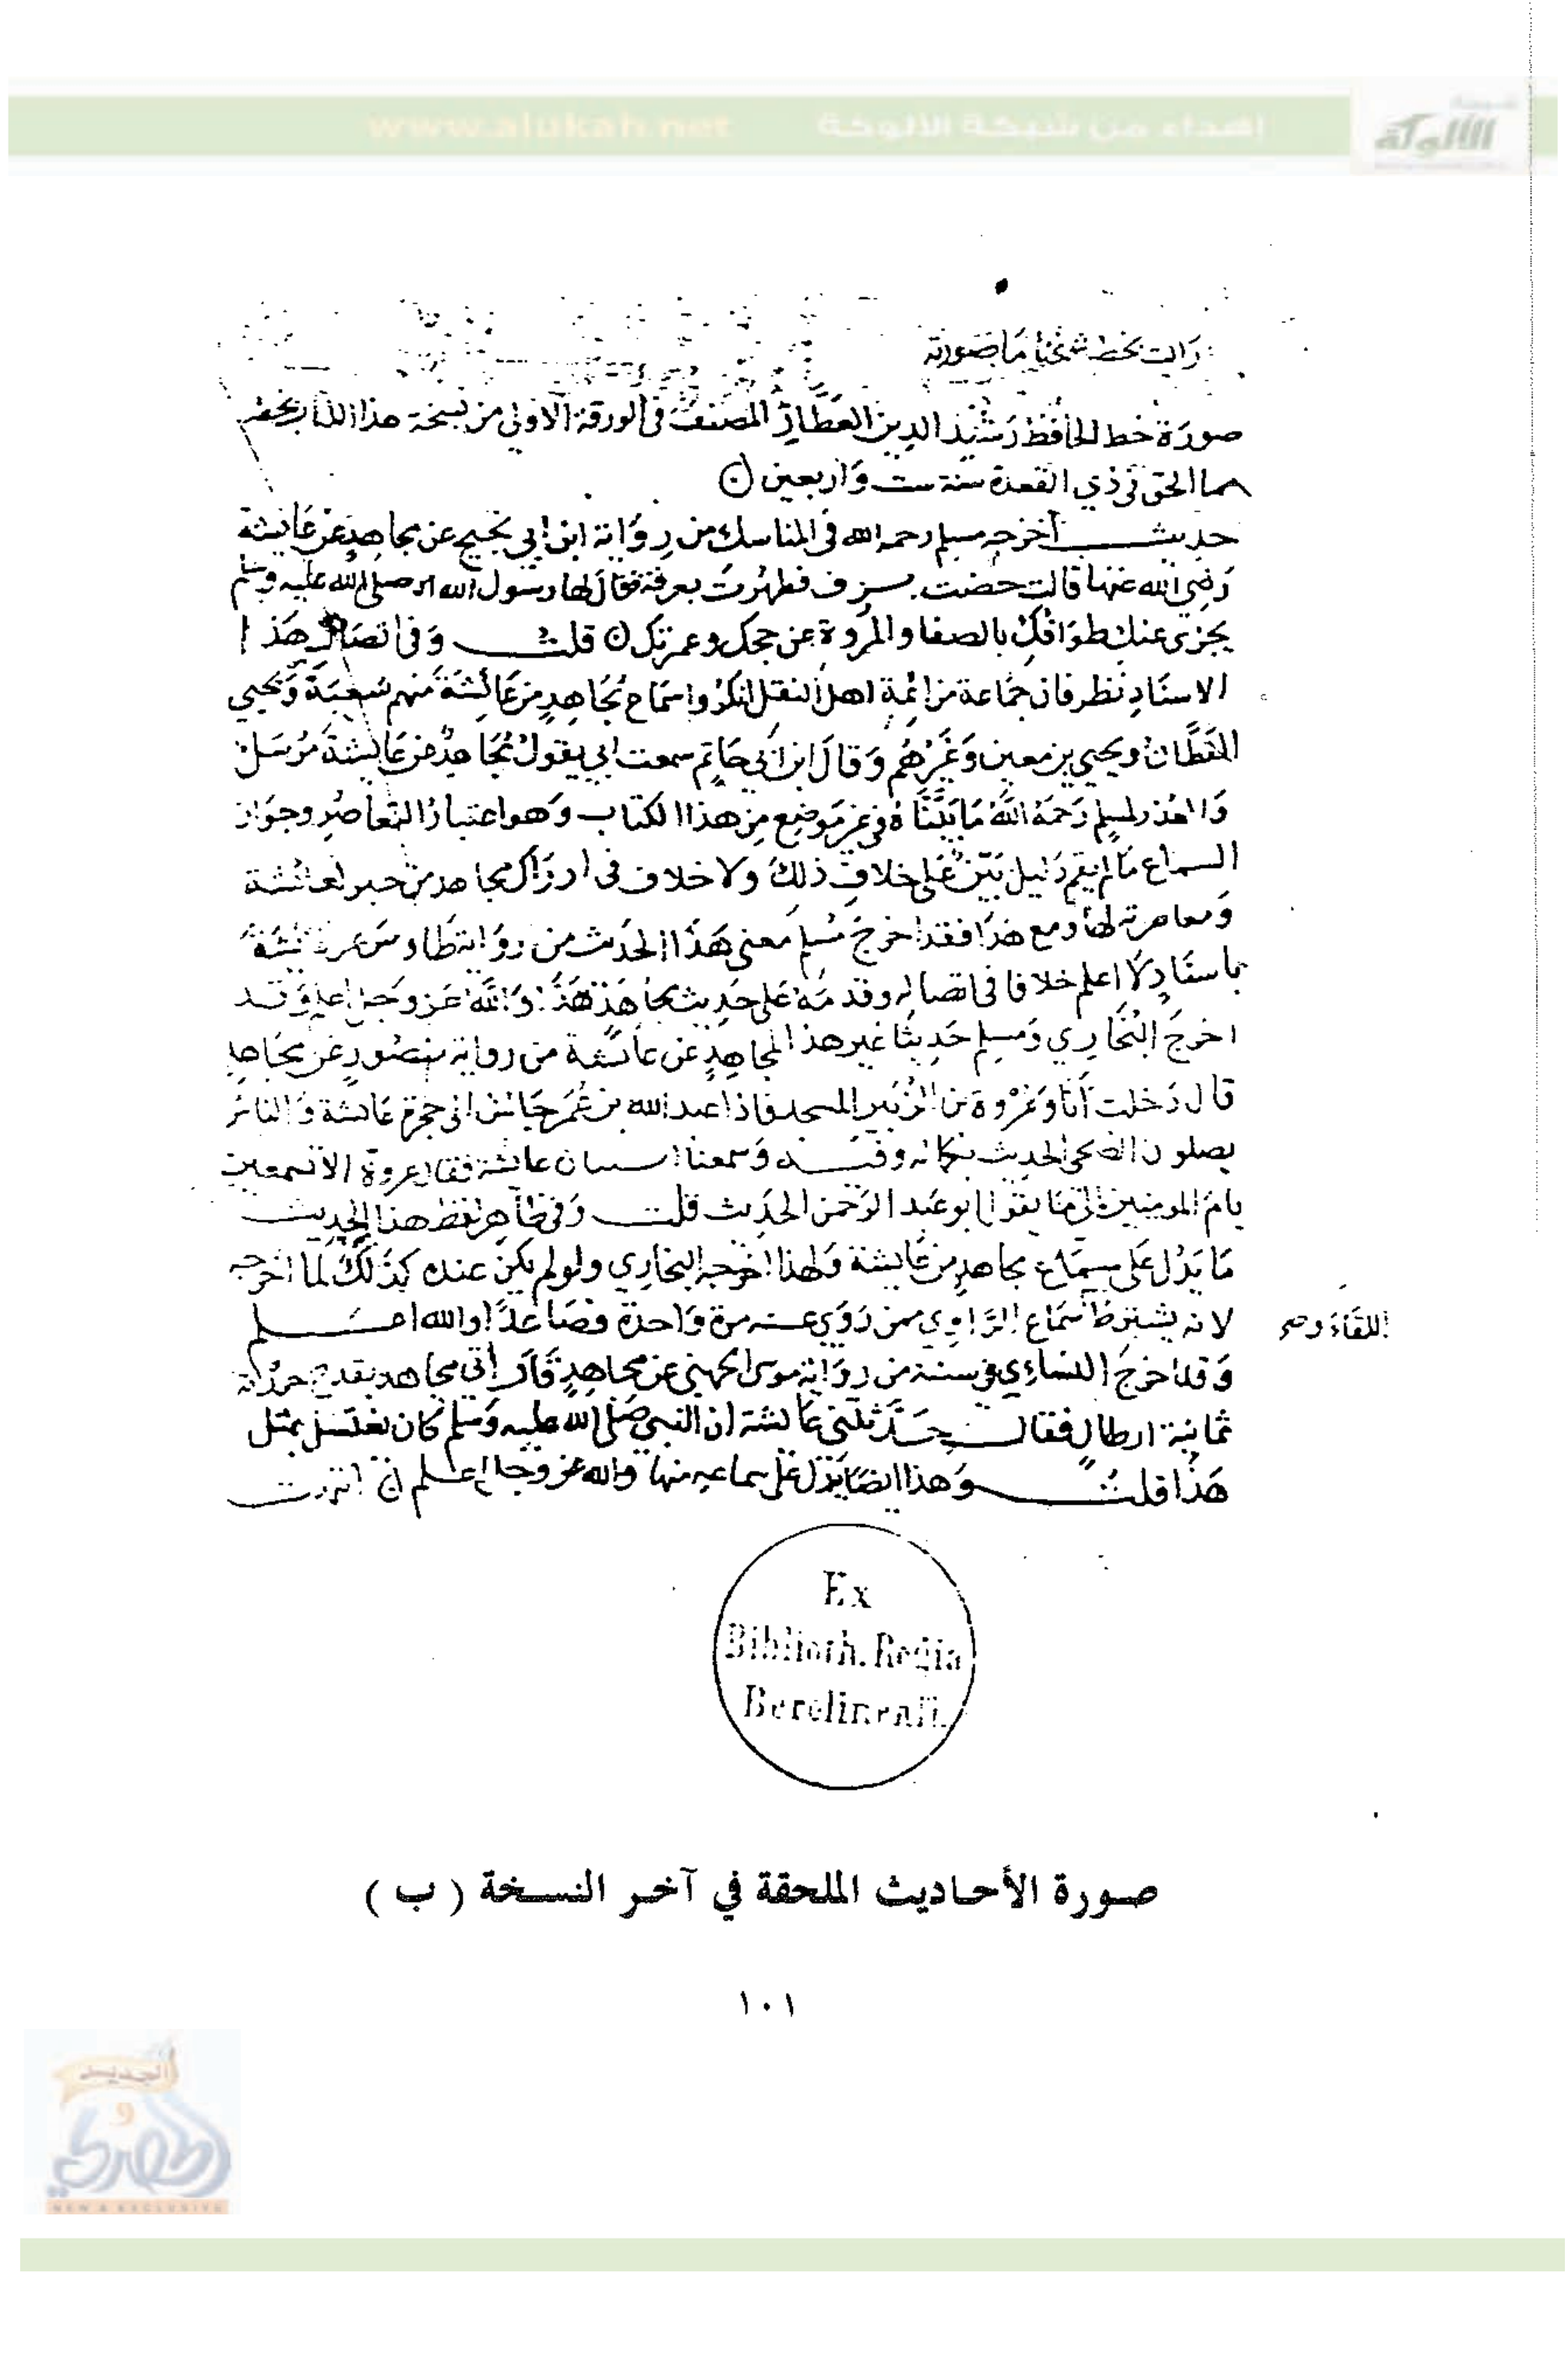 www.alukah.net إهداء من شبكة الألوكة
شبكة
الألوكة
رأيت بخط شيخنا ما صورته
صورة خط الحافظ رشيد الدين العطار المصنف في الورقة الأولى من نسخة هذا الكتاب بخطه
مما الحق في ذي القعدة سنة ست وأربعين
حديث أخرجه مسلم رحمه الله في المناسك من رواية ابن أبي نجيح عن مجاهد عن عائشة
رضي الله عنها قالت حضت بسرف فطهرت بعرفة فقال لها رسول الله صلى الله عليه وسلم
يجزى عنك طوافك بالصفا والمروة عن حجك وعمرتك قلت وفي اتصال هذا
الاسناد نظر فان جماعة من ائمة اهل النقل انكروا سماع مجاهد من عائشة منهم شعبة ويحيى
القطان ويحيى بن معين وغيرهم وقال ابن ابي حاتم سمعت ابي يقول مجاهد عن عائشة مرسل
والعذر لمسلم رحمه الله ما بيناه في غير موضع من هذا الكتاب وهو اعتبار التعاصر وجواز
السماع ما لم يقم دليل بين على خلاف ذلك ولا خلاف في ادراك مجاهد بن جبر لعائشة
ومعاصرته لها ومع هذا فقد اخرج مسلم معنى هذا الحديث من رواية طاوس عن عائشة
باسناد لا اعلم خلافا في اتصاله وقدمه على حديث مجاهد هذا والله عز وجل اعلم وقد
اخرج البخاري ومسلم حديثا غير هذا لمجاهد عن عائشة من رواية منصور عن مجاهد
قال دخلت أنا وعروة بن الزبير المسجد فاذا عبد الله بن عمر جالس الى حجرة عائشة والناس
يصلون الضحى الحديث بكماله وفيه وسمعنا استنان عائشة فقال عروة الا تسمعين
يا ام المومنين الى ما يقول ابو عبد الرحمن الحديث قلت وفي ظاهر لفظ هذا الحديث
ما يدل على سماع مجاهد من عائشة ولهذا اخرجه البخاري ولو لم يكن عنده كذلك لما اخرجه
لانه يشترط سماع الراوي ممن روى عنه مرة واحدة فصاعدا والله اعلم
اللقاء وصح
وقد اخرج النسائي في سننه من رواية موسى الجهني عن مجاهد قال أتي مجاهد بقدح حزرته
ثمانية ارطال فقال حدثتني عائشة ان النبي صلى الله عليه وسلم كان يغتسل بمثل
هذا قلت وهذا ايضا يدل على سماعه منها والله عز وجل اعلم
Ex
Biblioth. Regia
Berolinensi.
صورة الأحاديث الملحقة في آخر النسخة ( ب )
١٠١
الجديد
و
الحصري
NEW & EXCLUSIVE